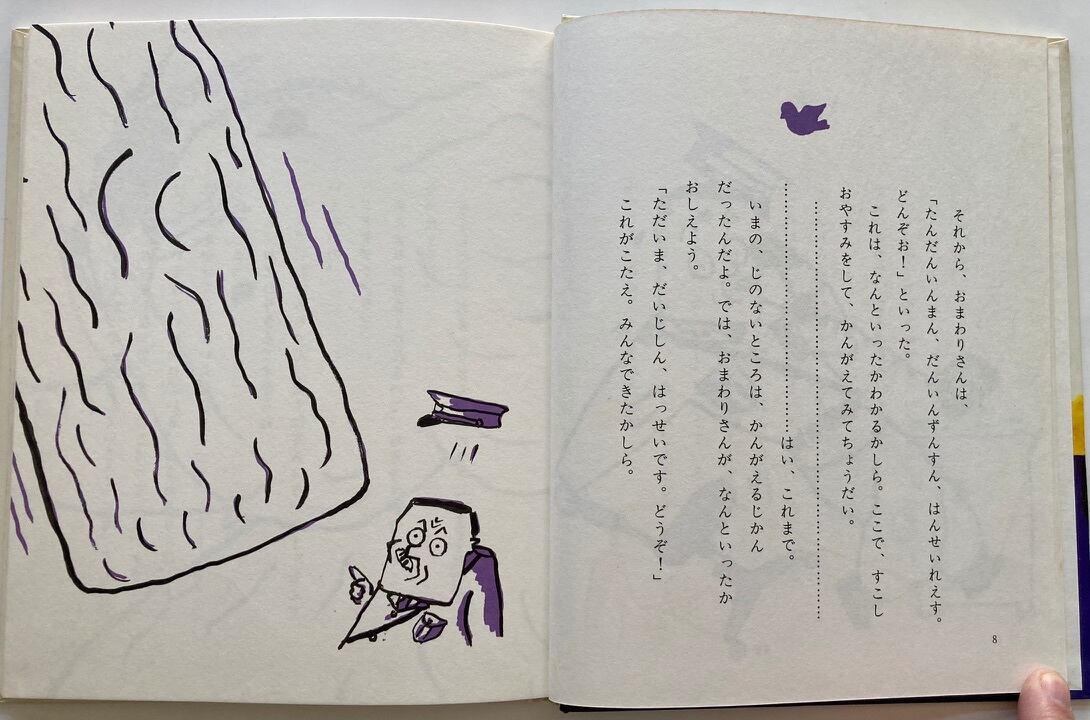 それから、おまわりさんは、
「たんだんいんまん、だんいんずんすん、はんせいれえす。
どんぞお！」といった。
これは、なんといったかわかるかしら。ここで、すこし
おやすみをして、かんがえてみてちょうだい。
……………………………………………………
………………………………はい、これまで。
いまの、じのないところは、かんがえるじかん
だったんだよ。では、おまわりさんが、なんといったか
おしえよう。
「ただいま、だいじしん、はっせいです。どうぞ！」
これがこたえ。みんなできたかしら。
8